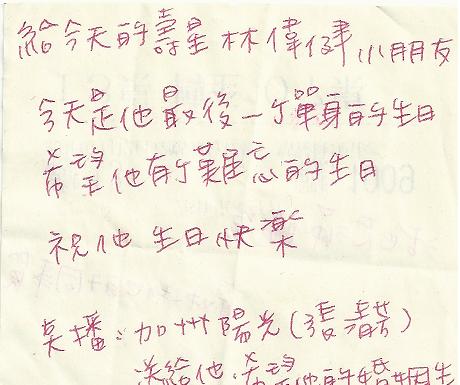 給今天的壽星林偉健小朋友
今天是他最後一個單身的生日
希望他有個難忘的生日
祝他生日快樂
點播:加州陽光(張
送給他,希望他的婚姻生